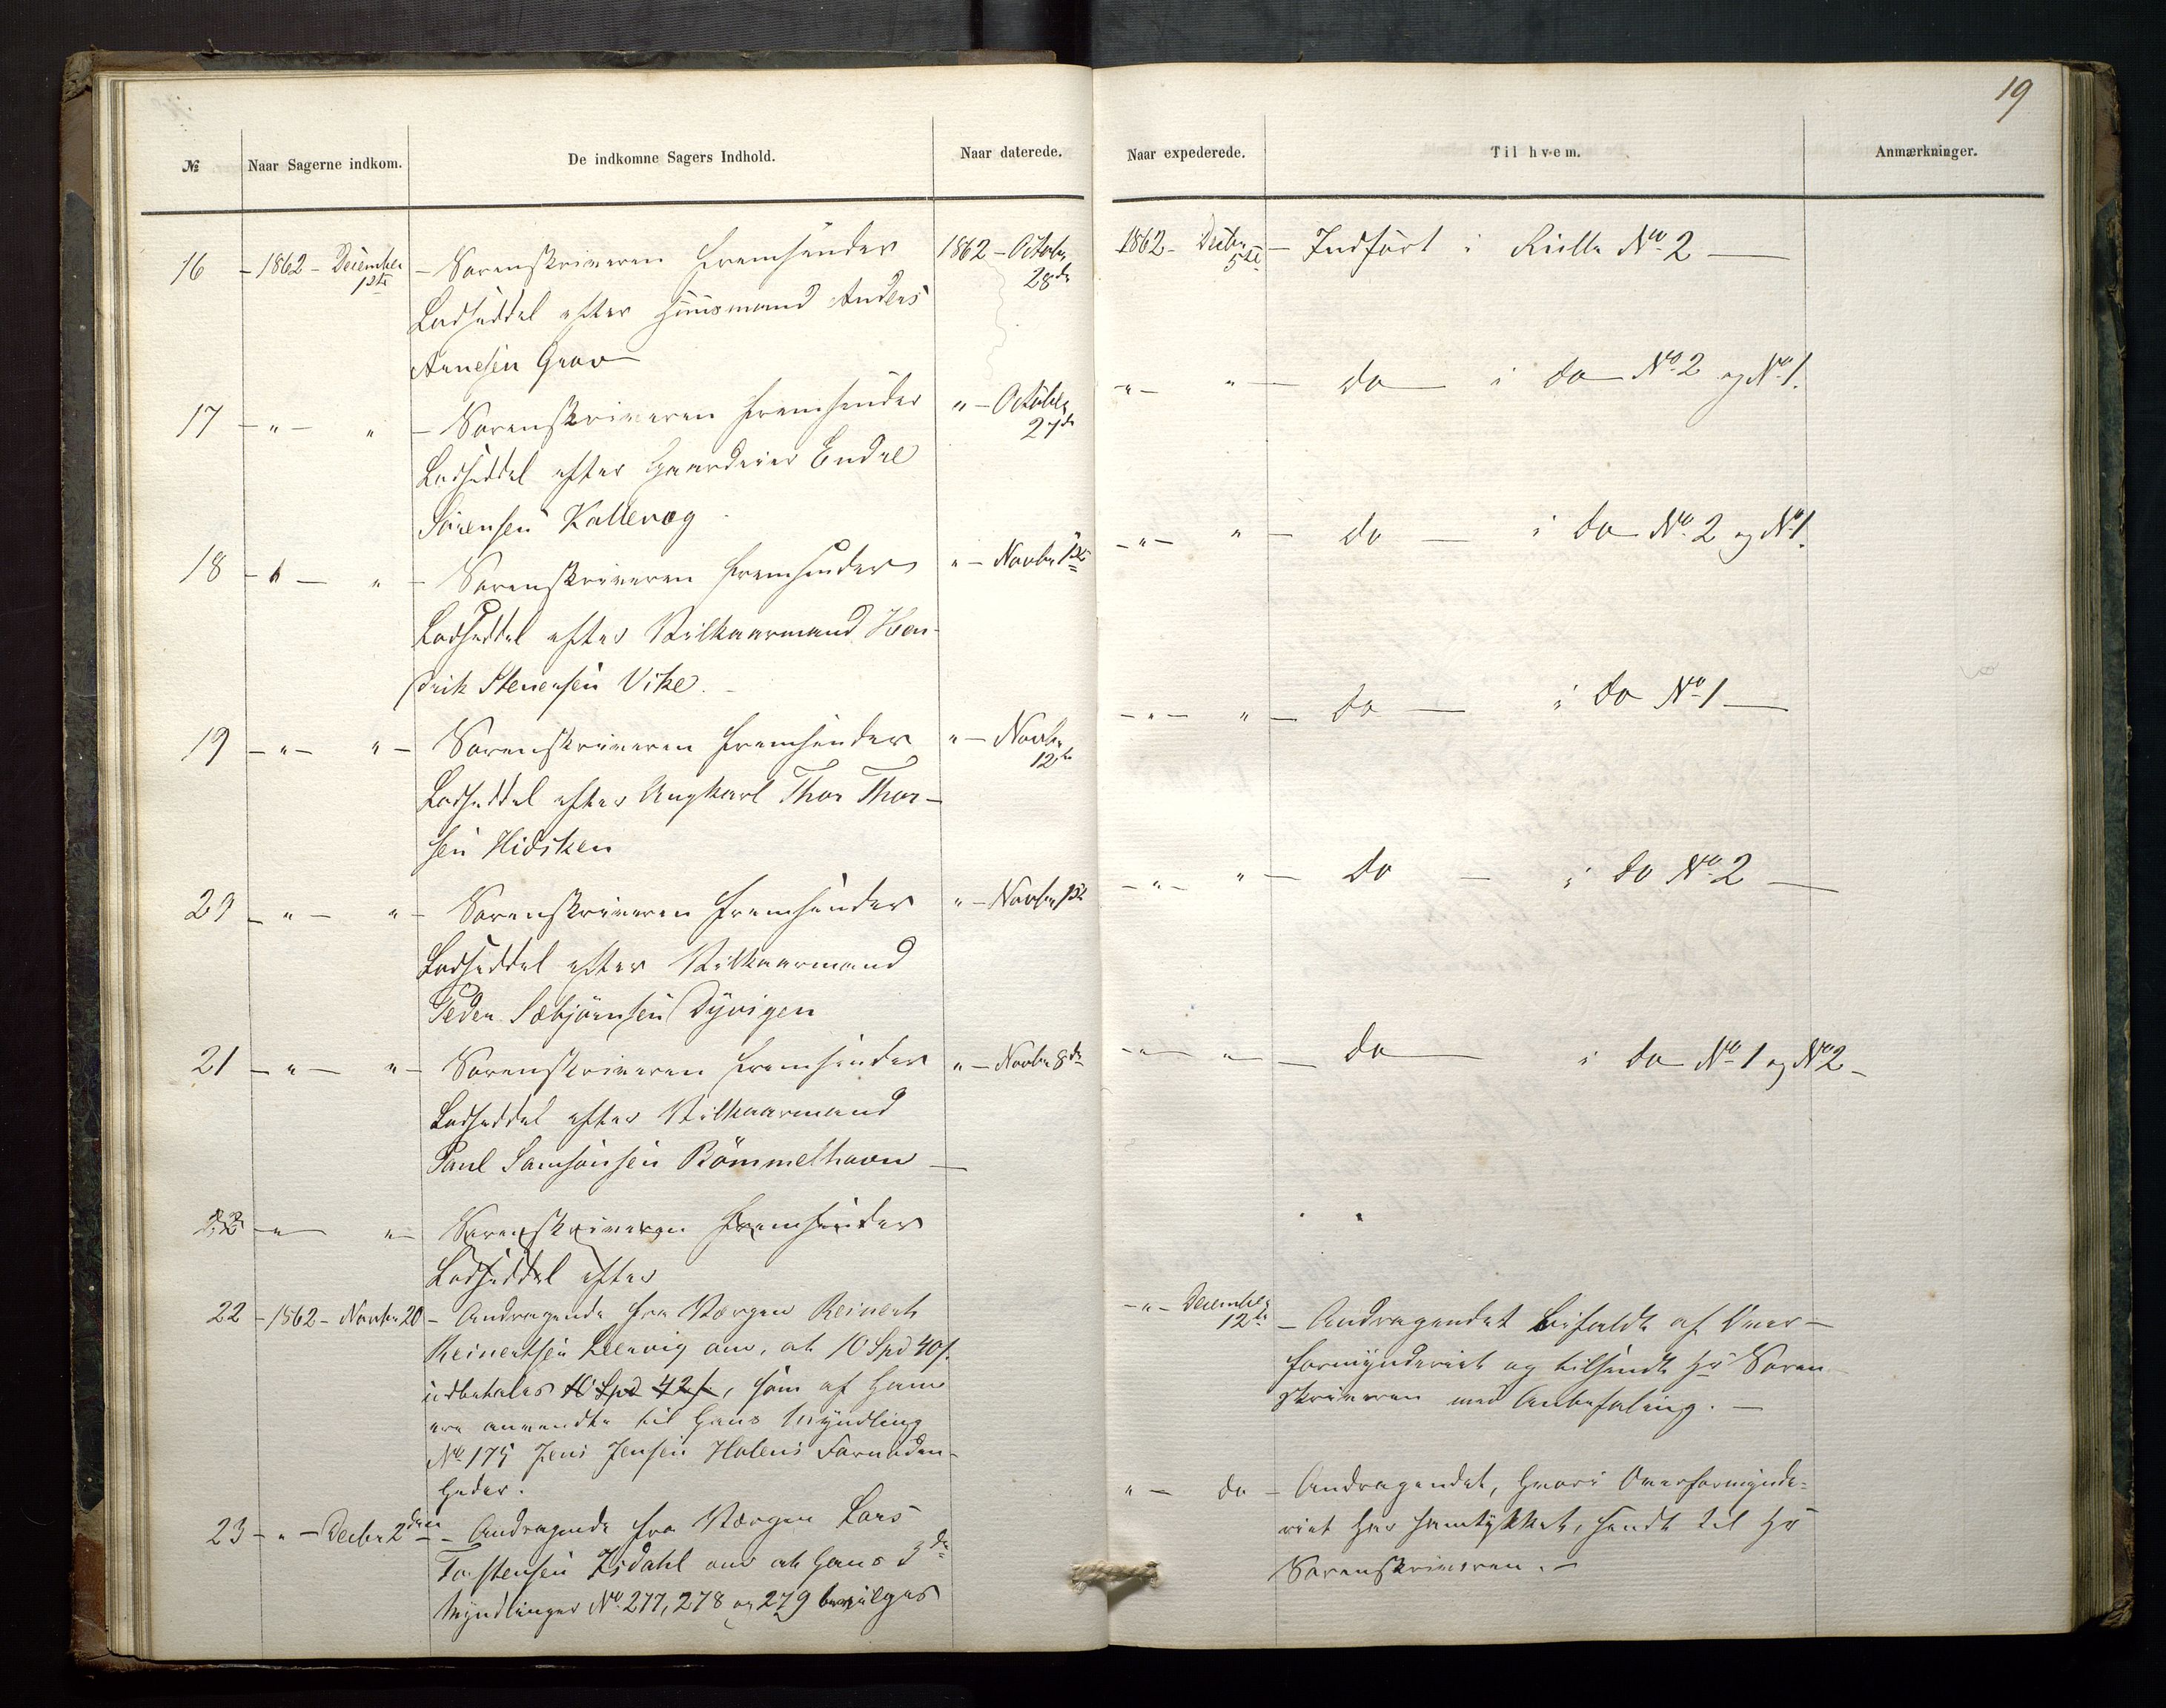 19
№ Naar Sagerne indkom. De indkomne Sagers Indhold. Naar daterede. Naar expederede. Til hvem. Anmærkninger.
16 - 1862 - December 1ste - Sorenskriveren fremsender 1862 - October 28de
Lodseddel efter Huusmand Anders
Arnesen Grov
1862 - Decbr 5te - Indført i Rulle No 2 —
17 - " - " - Sorenskriveren fremsender " - October 27de
Lodseddel efter Gaardeier Endre
Sørensen Kallevog
- " - " - do - i do No 2 og No 1.
18 - " - " - Sorenskriveren fremsender " - Novbr 1ste
Lodseddel efter Vilkaarmand Hen-
drik Stenersen Vike. -
- " - " - do - i do No 2 og No 1.
19 - " - " - Sorenskriveren fremsender " - Novbr 12te
Lodseddel efter Ungkarl Thor Thor-
sen Hidsken
- " - " - do - i do No 1 —
20 - " - " - Sorenskriveren fremsender " - Novbr 1ste
Lodseddel efter Vilkaarmand
Peder Sæbjørnsen Dyvigen
- " - " - do - i do No 2 —
21 - " - " - Sorenskriveren fremsender " - Novbr 8de
Lodseddel efter Vilkaarmand
Paul Samsonsen Bömmelhavn —
- " - " - do - i do No 1 og No 2 -
22 - " - " - Sorenskriveren fremsender
Lodseddel efter
22 - 1862 - Novbr 20 - Andragende fra Værgen Reinert
Reinertsen Leervig om, at 10 Spd 40 s.
udbetales 10 Spd 42 s, som af ham
ere anvendte til hans Myndling
No 175 Jens Jensen Holens Fornøden-
heder.
- " - December 12te - Andragendet bifaldt af Over-
formynderiet og tilsendt Hr Soren
skriveren med Anbefaling. —
23 - " - Decbr 2den - Andragende fra Værgen Lars
Torstensen om at hans 3de
Myndlinger No 277, 278 og 279 bevilges
" - do - Andragendet, hvori Overformynde-
riet har samtykket, sendt til Hr
Sorenskriveren. -